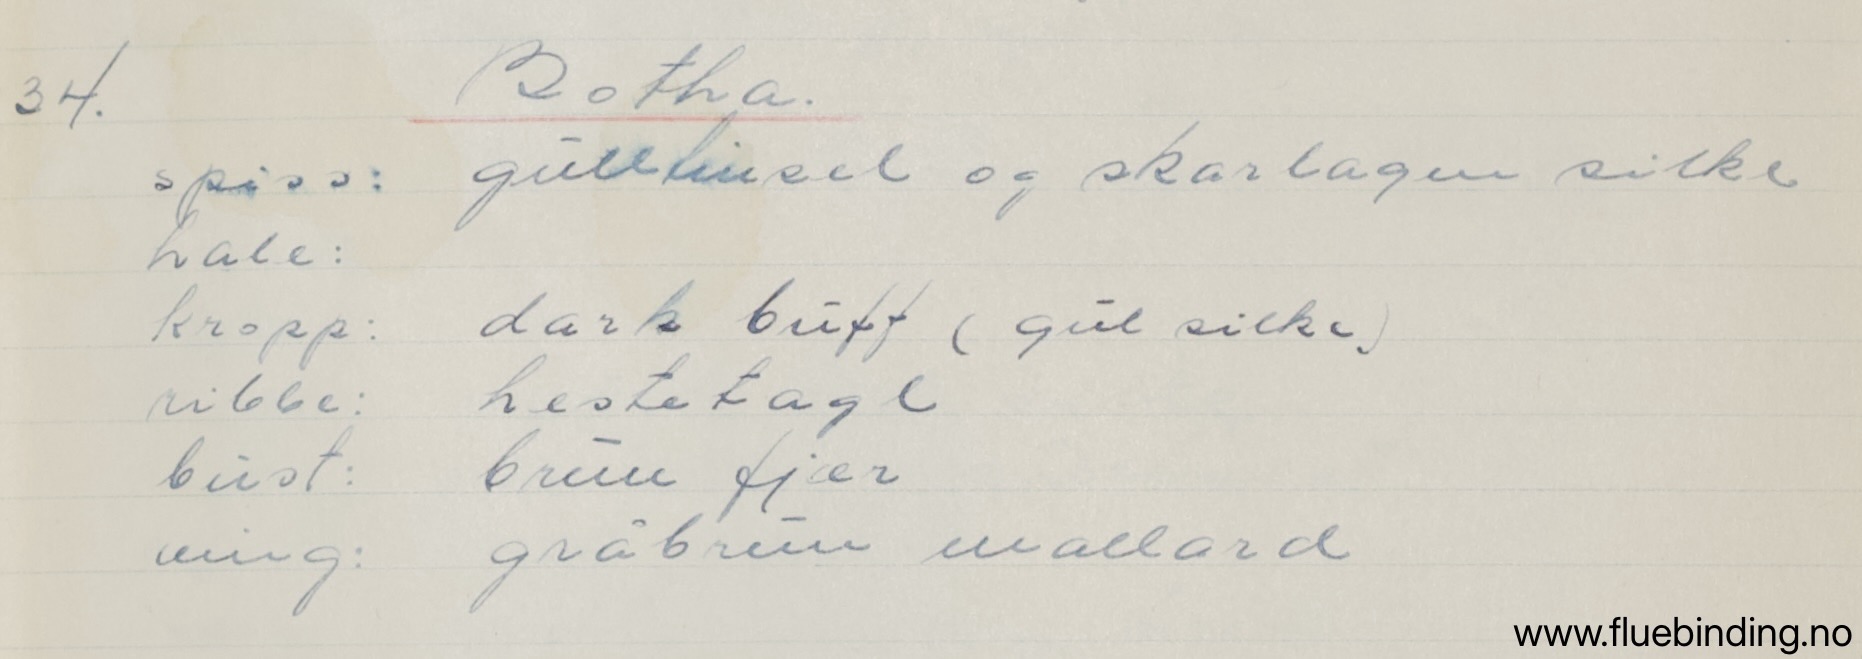 34. Botha.
spiss: gulltinsel og skarlagen silke
hale:
kropp: dark buff (gul silke)
ribbe: hestetagl
bust: brun fjær
ving: gråbrun mallard
www.fluebinding.no